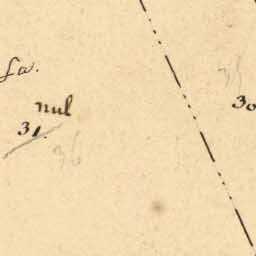 La.
nul
31.
36
35
30